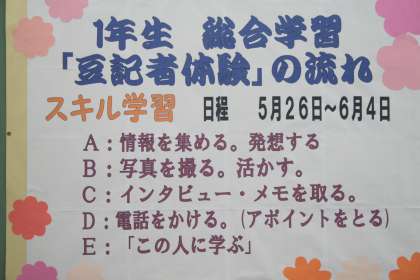 1年生 総合学習
「豆記者体験」の流れ
スキル学習 日程 5月26日~6月4日
A:情報を集める。発想する
B:写真を撮る。活かす。
C:インタビュー・メモを取る。
D:電話をかける。(アポイントをとる)
E:「この人に学ぶ」